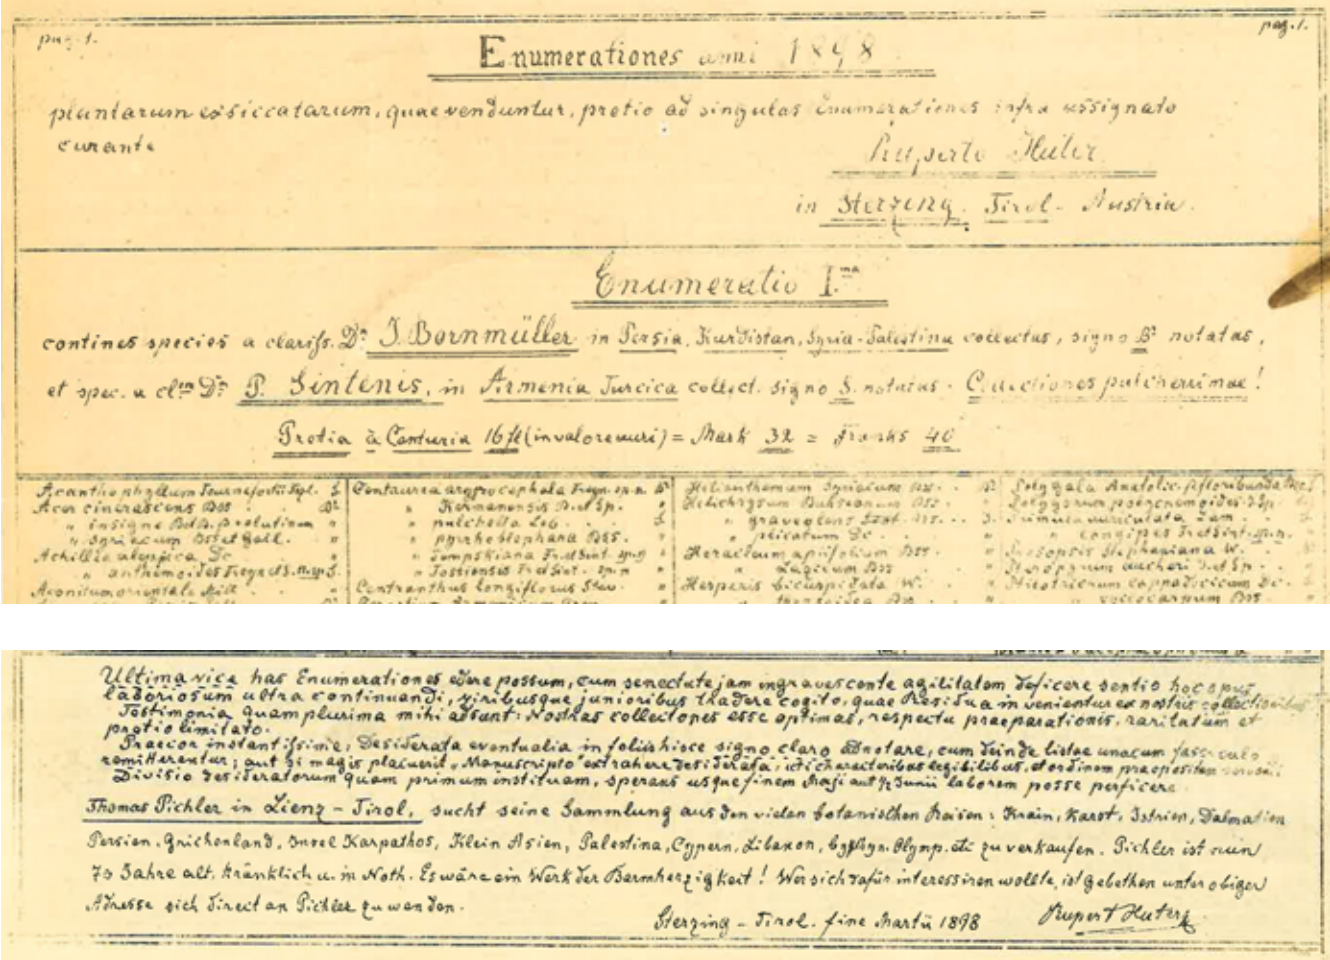 pag. 1.
pag. 1.
Enumerationes anni 1898
plantarum exsiccatarum, quae venduntur, pretio ad singulas Enumerationes infra assignato
curante
Ruperto Huter
in Sterzing. Tirol - Austria.
Enumeratio I.ma
contines species a clariss. Dre J. Bornmüller in Persia, Kurdistan, Syria-Palestina collectas, signo Br notatas,
et spec. a cl.mo Dre P. Sintenis, in Armenia Turcica collect. signo S. notatas. Collectiones pulcherrimae!
Pretia à Centuria 16 fl (in valore auri) = Mark 32 = Franks 40
Acantho phyllum Tournefortii S
Acer cinerascens Bss Br
" insigne B velutinum "
" syriacum Boss et Gaill. "
Achillea aleppica Dc "
" anthemoides Freyn et S. n. sp. S.
Aconitum orientale Mill
Centaurea argyrocephala Freyn. sp. n. Br
" Kermanensis B et Sp. "
" pulchella Leb S
" pyrrhoblephara Bss. "
" Tempskiana Fr et Sint. sp. n "
" Tossiensis Fr et Sint. sp. n "
Centranthus longiflorus Stev. "
Helianthemum Syriacum Br
Helichrysum Bss "
" graveolens Bss S.
" plicatum Dc "
Heracleum apiifolium Bss "
" Bss "
Hesperis bicuspidata W. "
" thyrsoidea Bss "
Polygala Anatolic. S
Polygonum polycnemoides J. Sp.
Primula auriculata Lam
" longipes Fr et Sint. sp. n.
Prosopis Stephaniana W.
Pteropyrum aucheri J. et Sp.
Dc.
Bss
Ultima vice has Enumerationes edere possum, cum senectute jam ingravescente agilitatem deficere sentio hoc opus
laboriosum ultra continuandi, viribusque junioribus tradere cogito, quae Residua invenientur ex nostris collectionibus
Testimonia quam plurima mihi adsunt: Nostras collectiones esse optimas, respectu praeparationis, raritatum et
pretio limitato.
Praecor instantissime, Desiderata eventualia in foliis hisce signo claro adnotare, cum deinde listae unacum fasciculo
remitterentur; aut si magis placuerit "Manuscripto" extrahere desiderata, characteribus legibilibus, et ordinem praepositum
Divisio desideratorum quam primum instituam, sperans usque finem Maji aut ½ Junii laborem posse perficere.
Thomas Pichler in Lienz - Tirol, sucht seine Sammlung aus den vielen botanischen Reisen: Krain, Karst, Istrien, Dalmatien
Persien, Grichenland, Insel Karpathos, Klein Asien, Palestina, Cypern, Libanon, Olymp. etc zu verkaufen. Pichler ist nun
73 Jahre alt, kränklich u. in Noth. Es wäre ein Werk der Barmherzigkeit! Wer sich dafür interessiren wollte, ist gebethen unter obiger
Adresse sich direct an Pichler zu wenden.
Sterzing - Tirol. fine Martii 1898 Rupert Huter